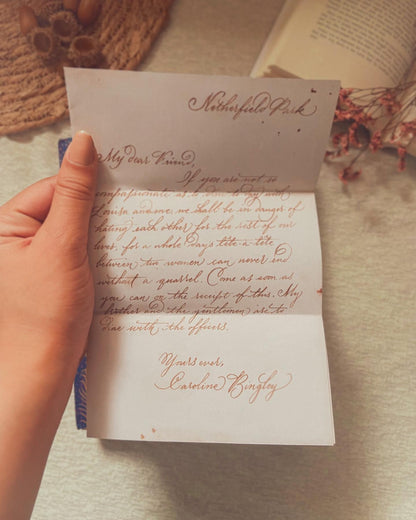 Netherfield Park
My dear Friend,
If you are not so
compassionate as to dine to-day with
Louisa and me, we shall be in danger of
hating each other for the rest of our
lives, for a whole day's tête-à-tête
between two women can never end
without a quarrel. Come as soon as
you can on the receipt of this. My
brother and the gentlemen are to
dine with the officers.
Yours ever,
Caroline Bingley